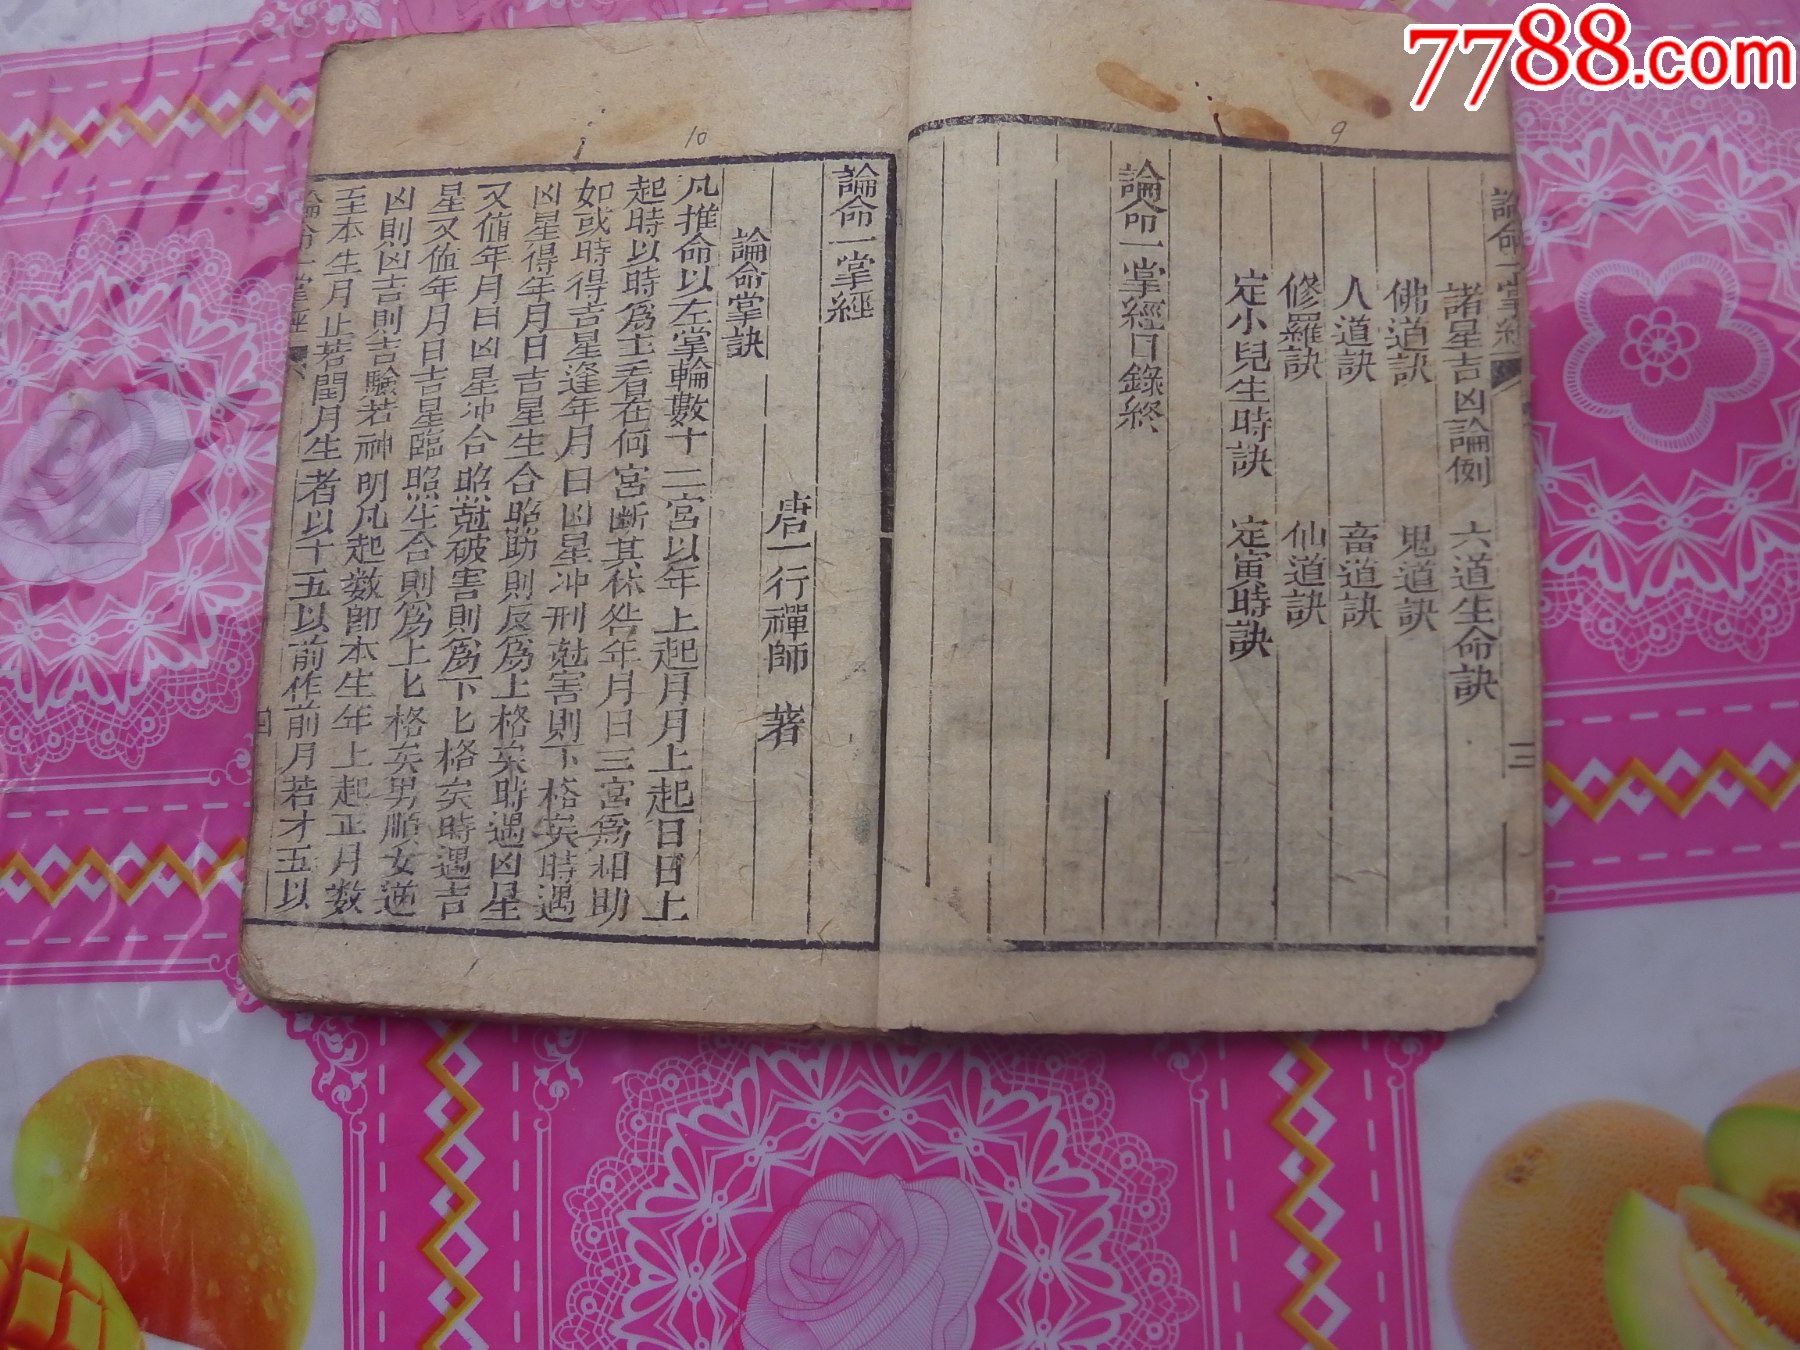 7788.com
9
論命一掌經
三
諸星吉凶論例 六道生命訣
佛道訣 鬼道訣
人道訣 畜道訣
修羅訣 仙道訣
定小兒生時訣 定寅時訣
論命一掌經目錄終
10
論命一掌經
唐一行禪師 著
論命掌訣
凡推命以左掌輪數十二宮以年上起月月上起日日上
起時以時爲主看在何宮斷其休咎年月日三宮爲相助
如或時得吉星逢年月日凶星冲刑尅害則下格矣時遇
凶星得年月日吉星生合照助則反爲上格矣時遇凶星
又值年月日凶星冲合照尅破害則爲下七格矣時遇吉
星又值年月日吉星臨照生合則爲上七格矣男順女逆
凶則凶吉則吉驗若神明凡起数即本生年上起正月数
至本生月止若閏月生者以十五以前作前月若才五以
論命一掌經
四